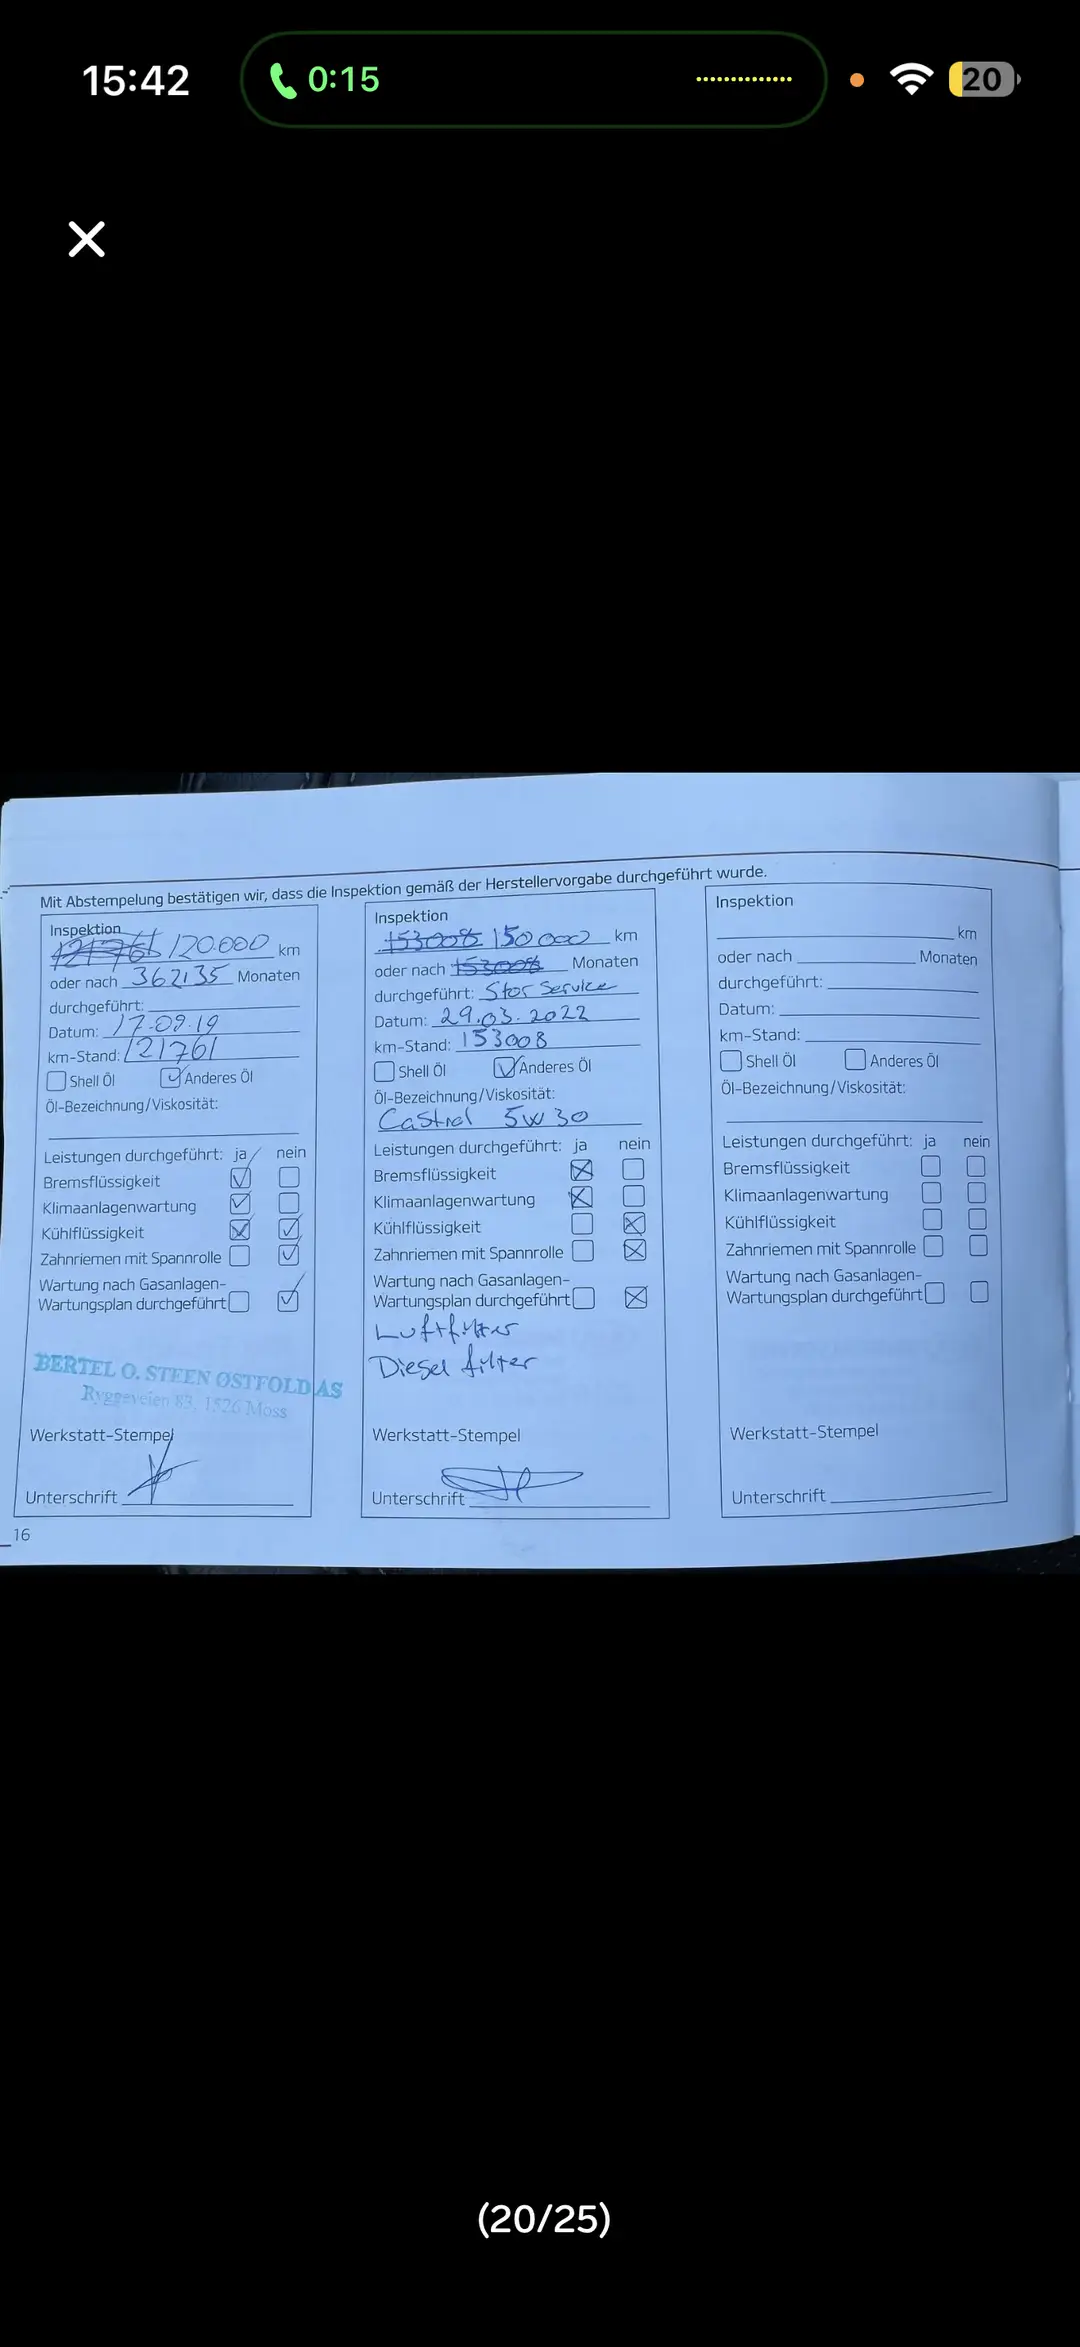 15:42
0:15
20
Mit Abstempelung bestätigen wir, dass die Inspektion gemäß der Herstellervorgabe durchgeführt wurde.
Inspektion
121761 120.000 km
oder nach 362135 Monaten
durchgeführt:
Datum: 17-09-19
km-Stand: 121761
Shell Öl Anderes Öl
Öl-Bezeichnung/Viskosität:
Leistungen durchgeführt: ja nein
Bremsflüssigkeit
Klimaanlagenwartung
Kühlflüssigkeit
Zahnriemen mit Spannrolle
Wartung nach Gasanlagen-
Wartungsplan durchgeführt
BERTEL O. STEEN ØSTFOLD AS
Ryggeveien 83, 1526 Moss
Werkstatt-Stempel
Unterschrift
16
Inspektion
153008 150000 km
oder nach 153008 Monaten
durchgeführt: Stor Service
Datum: 29.03.2022
km-Stand: 153008
Shell Öl Anderes Öl
Öl-Bezeichnung/Viskosität:
Castrol 5W30
Leistungen durchgeführt: ja nein
Bremsflüssigkeit
Klimaanlagenwartung
Kühlflüssigkeit
Zahnriemen mit Spannrolle
Wartung nach Gasanlagen-
Wartungsplan durchgeführt
Luftfilter
Diesel filter
Werkstatt-Stempel
Unterschrift
Inspektion
km
oder nach Monaten
durchgeführt:
Datum:
km-Stand:
Shell Öl Anderes Öl
Öl-Bezeichnung/Viskosität:
Leistungen durchgeführt: ja nein
Bremsflüssigkeit
Klimaanlagenwartung
Kühlflüssigkeit
Zahnriemen mit Spannrolle
Wartung nach Gasanlagen-
Wartungsplan durchgeführt
Werkstatt-Stempel
Unterschrift
(20/25)